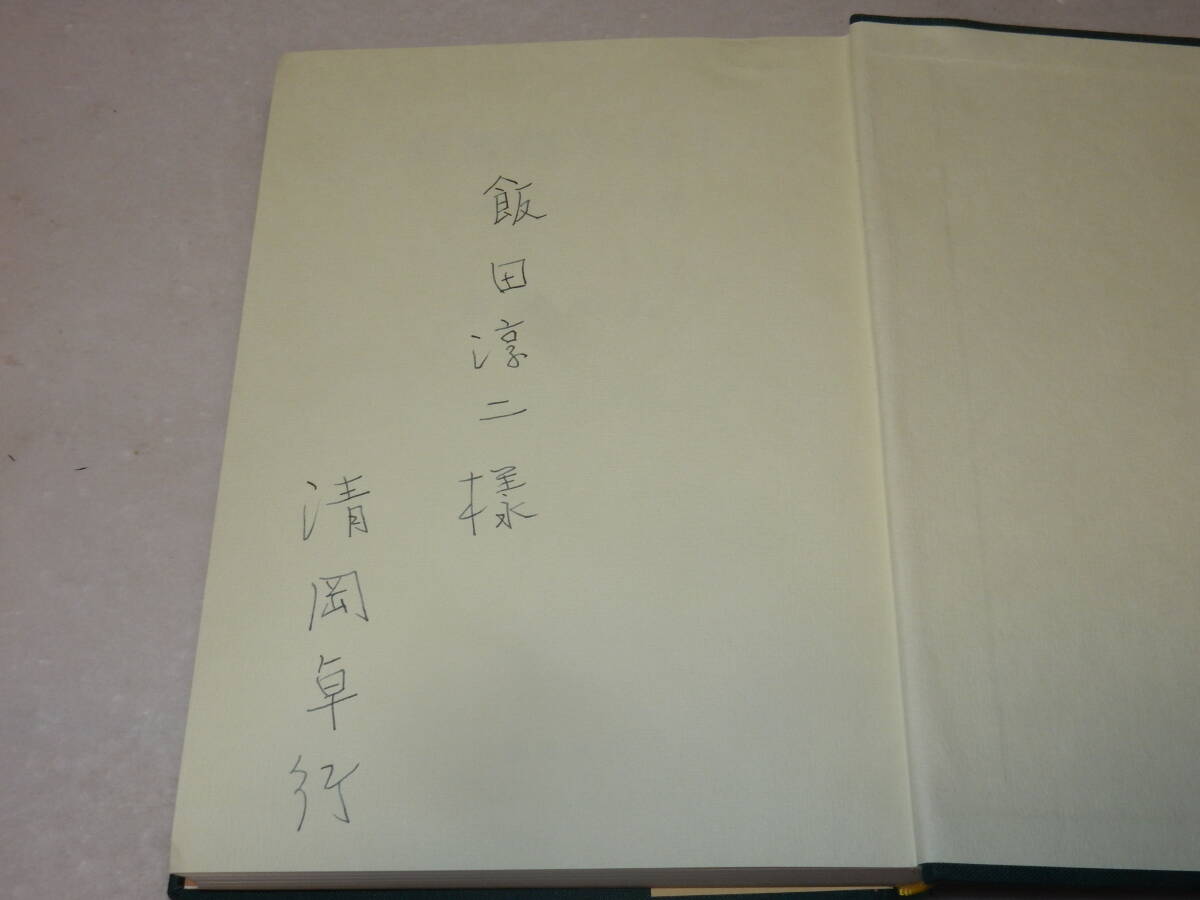 飯田淳二様
清岡卓行